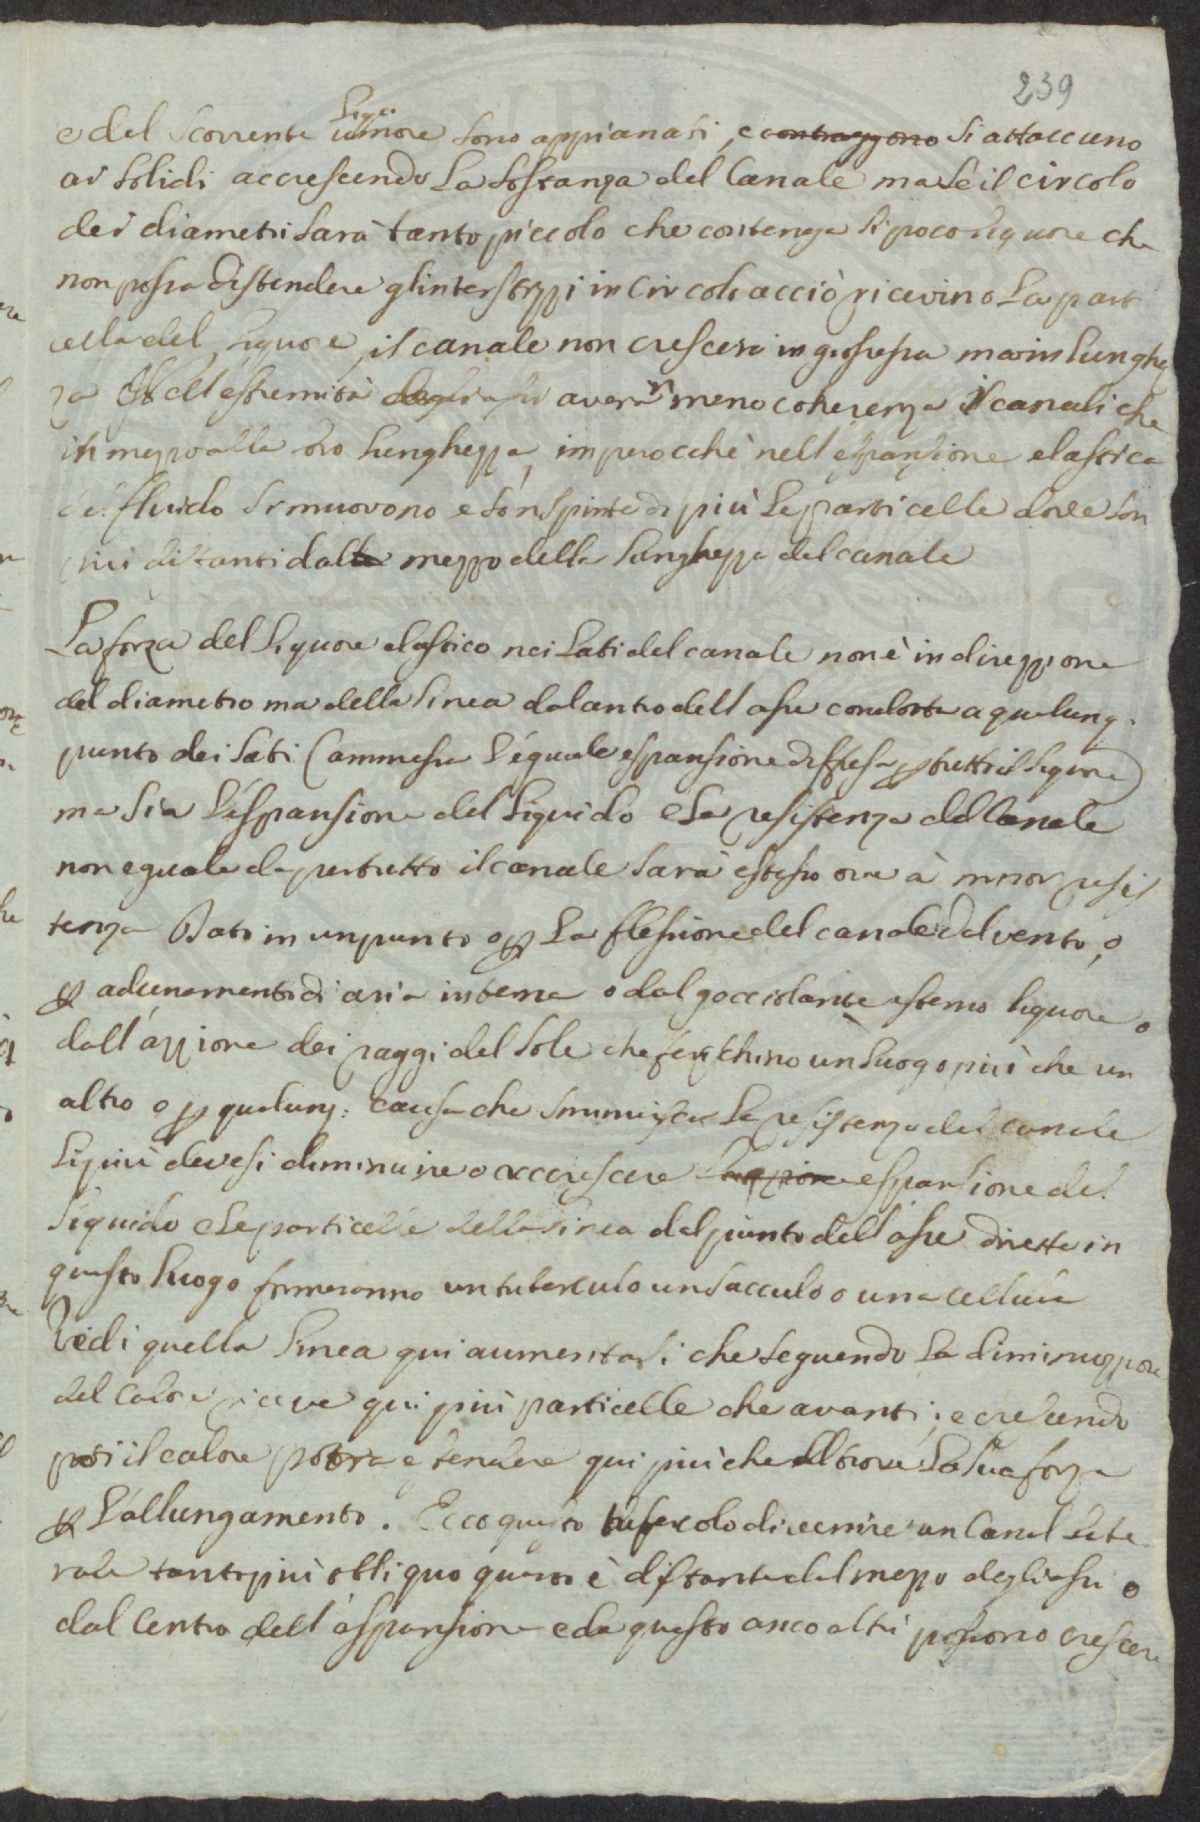 239
e del scorrente umore sono appianati, e contraggono si attaccano
ai solidi accrescendo la sostanza del Canale ma se il circolo
dei diametri sarà tanto piccolo che contenga si poco liquore che
non possa distendere gl'interstizzi in circolo acciò ricevino la parti
cella del liquore, il canale non crescerà in grossezza ma in lunghez
za all'estremità averan meno coherenza i canali che
in mezzo alla loro lunghezza, imperocchè nell'espanzione elastica
del fluido si muovono e son spinte di più le particelle dove son
più distanti dal mezzo della lunghezza del canale
La forza del liquore elastico nei lati del canale non è in direzzione
del diametro ma della linea dal centro dell'asse condotta a qualunq.
punto dei lati (ammessa l'eguale espansione diffusa p tutto il liquore)
ma sia l'espansione del liquido e la resistenza del Canale
non eguale da pertutto il canale sarà esteso ove à minor resis
tenza Dato in un punto o p la flessione del canale dal vento, o
p adunamento di aria interna o dal gocciolante esterno liquore o
dall'azzione dei raggi del sole che ferischino un luogo più che un
altro o p qualunq: causa che sminuisca la resistenza del canale
lì più devesi diminuire o accrescere espansione del
liquido e le particelle della linea dal punto dell'asse dirette in
questo luogo formeranno un tubercolo un sacculo o una cellula
Vedi quella linea qui aumentarsi che seguendo la diminuzzione
del calore riceve qui più particelle che avanti; e crescendo
poi il calore potrà estendere qui più che altrove la sua forza
p l'allungamento. Ecco questo tubercolo divenire un Canal late
rale tanto più obliquo quanto è distante dal mezzo degli assi o
dal centro dell'espansione e da questo anco altri possono crescere